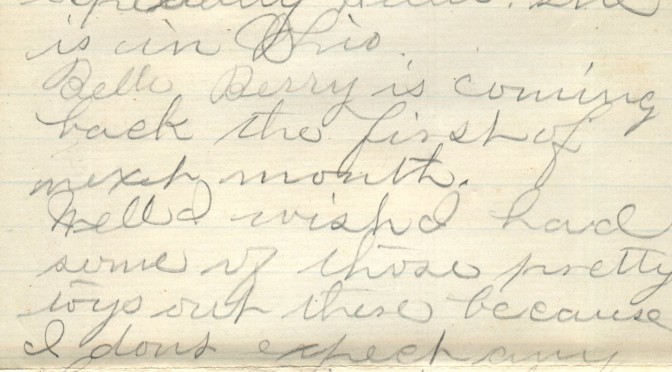 is in Ohio.
Belle Berry is coming
back the first of
next month.
Well I wish I had
some of those pretty
toys out there because
I dont expect any